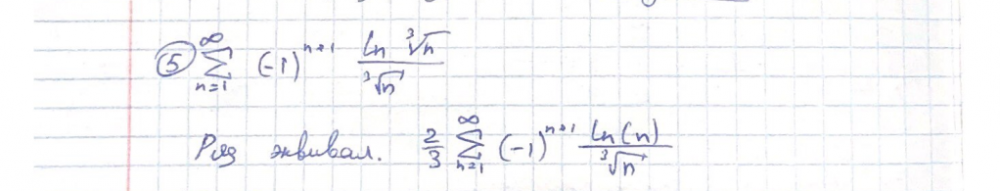 ⑤ ∑_{n=1}^{∞} (-1)^{n+1} \frac{ln ∛n}{∛n}
Ряд эквивал. \frac{2}{3} ∑_{n=1}^{∞} (-1)^{n+1} \frac{ln(n)}{∛n}